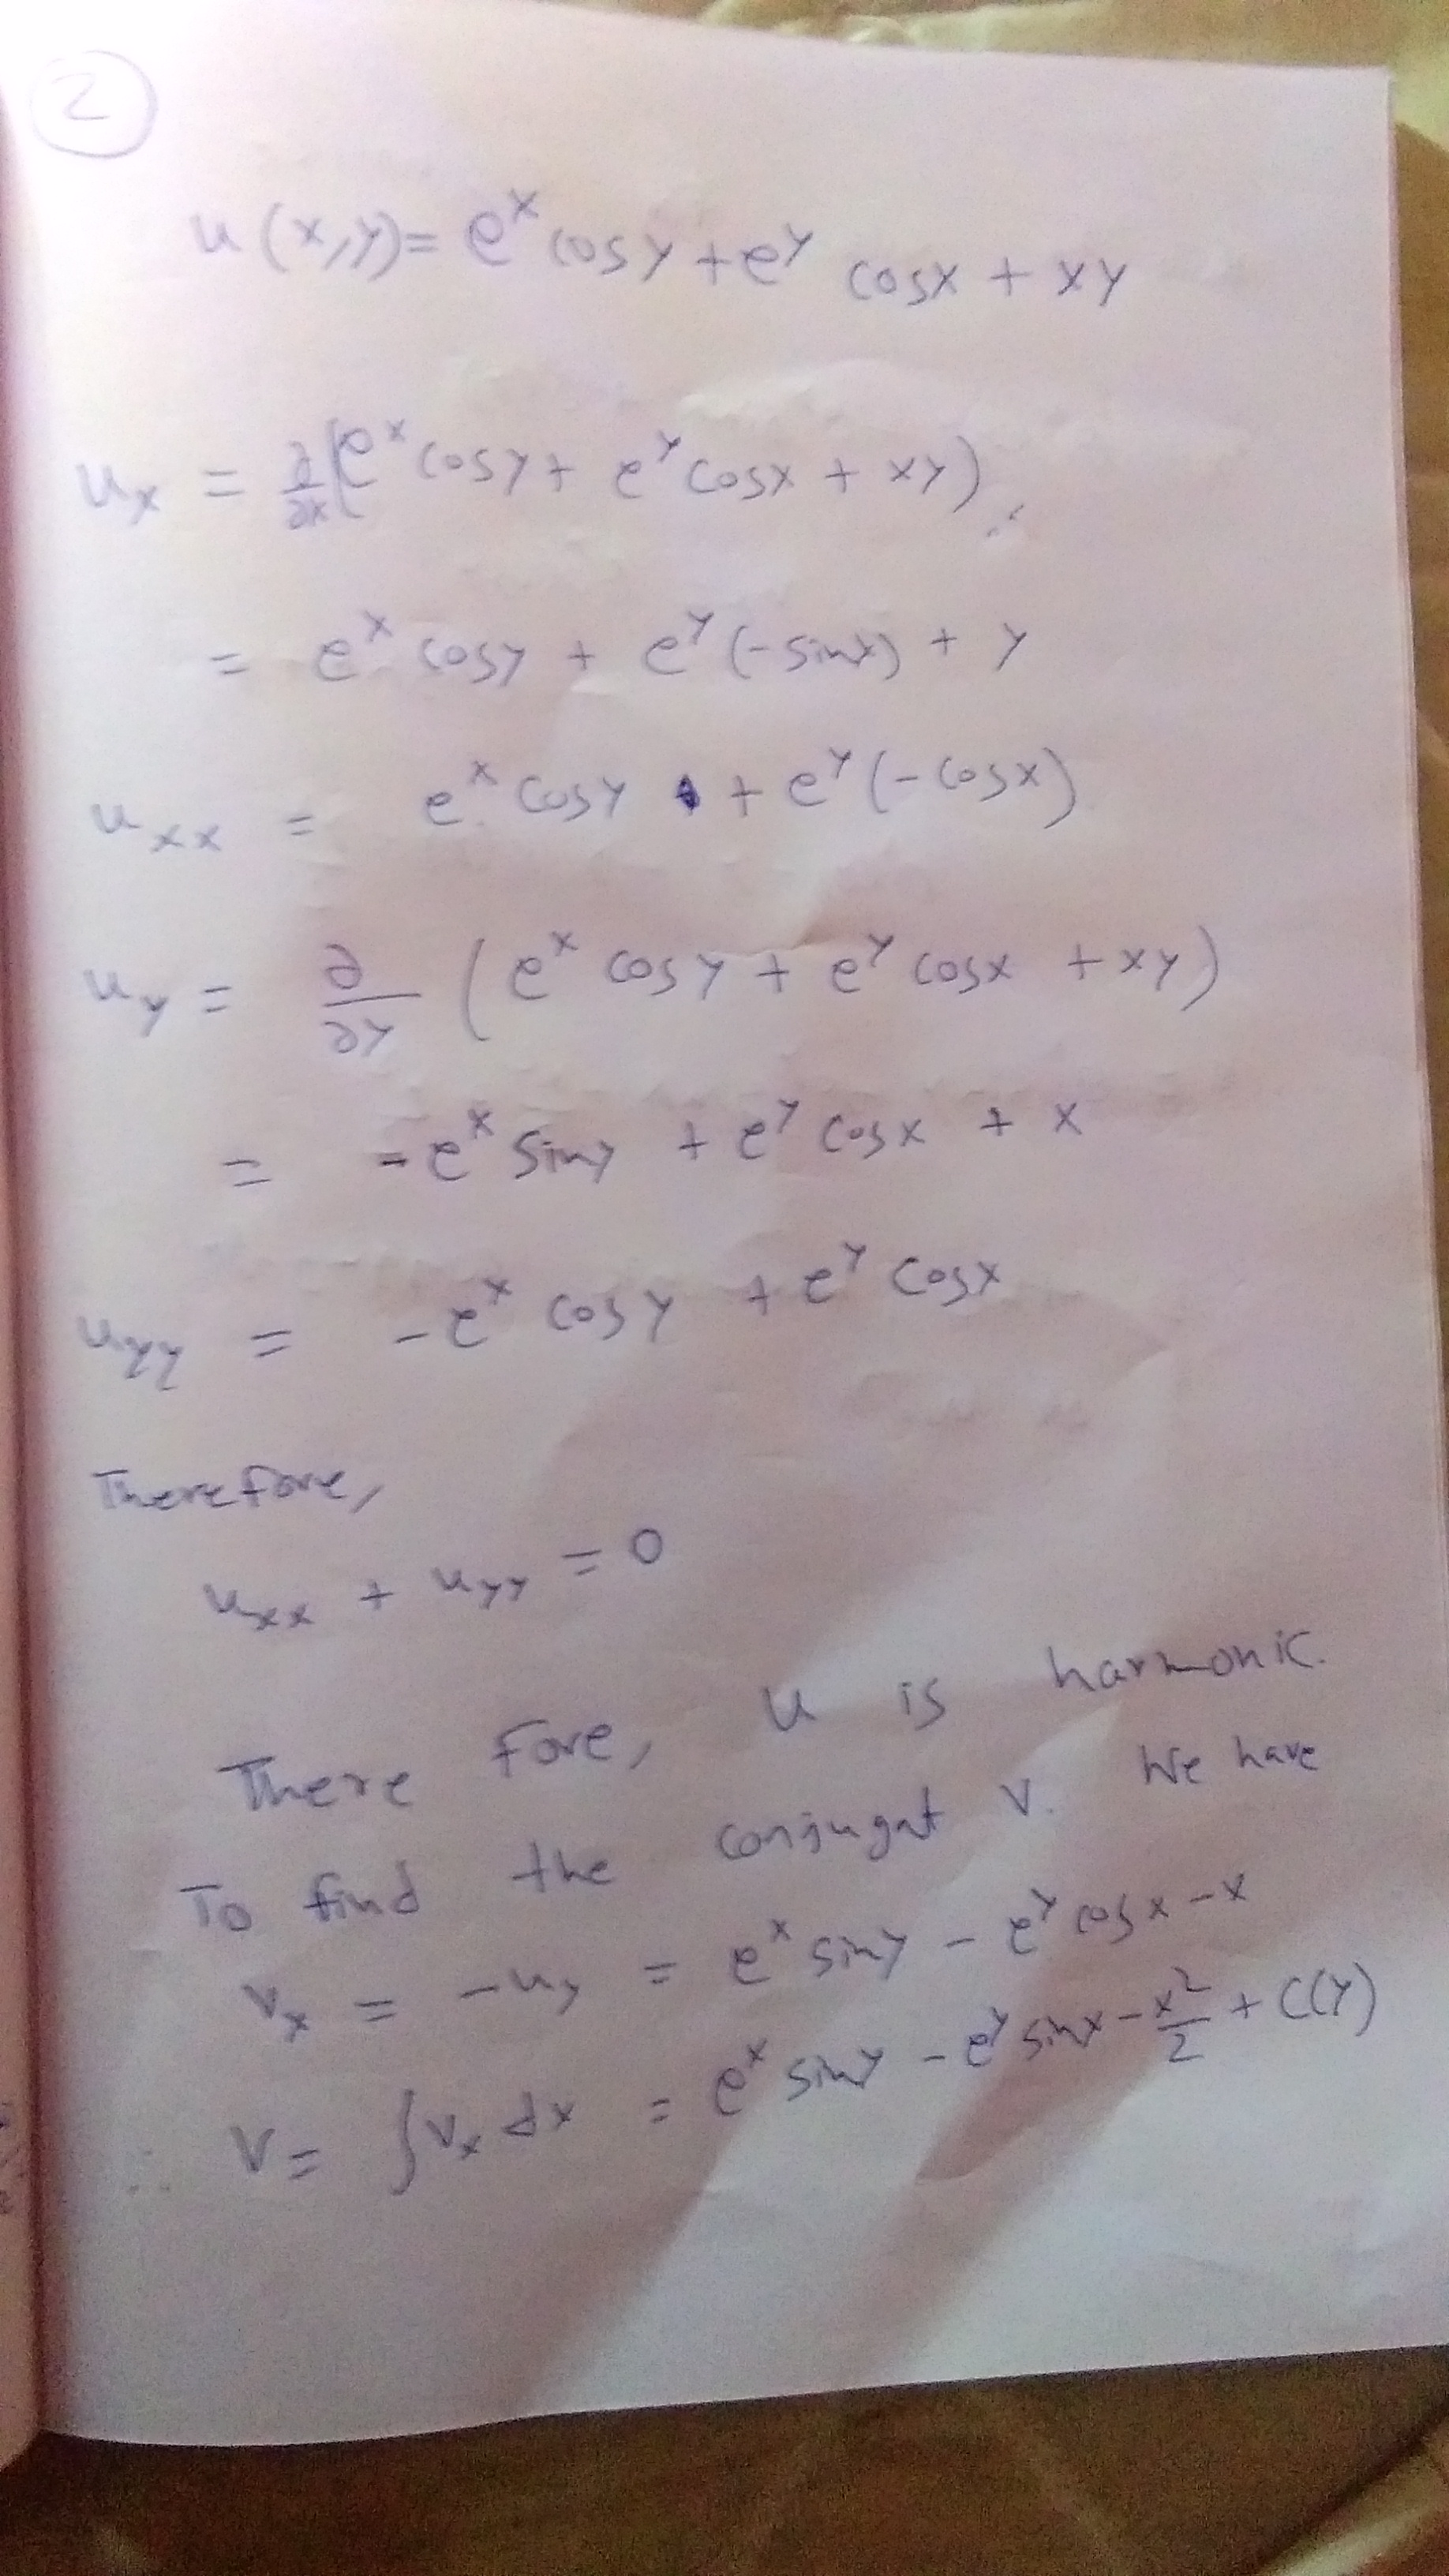 2
u(x,y)= e^x cosy + e^y cosx + xy
u_x = ∂/∂x (e^x cosy + e^y cosx + xy)
= e^x cosy + e^y (-sinx) + y
u_xx = e^x cosy + e^y (-cosx)
u_y = ∂/∂y (e^x cosy + e^y cosx + xy)
= -e^x siny + e^y cosx + x
u_yy = -e^x cosy + e^y cosx
Therefore,
u_xx + u_yy = 0
There fore, u is harmonic.
To find the conjugat v. We have
v_x = -u_y = e^x siny - e^y cosx - x
∴ V = ∫v_x dx = e^x siny - e^y sinx - x^2/2 + C(y)